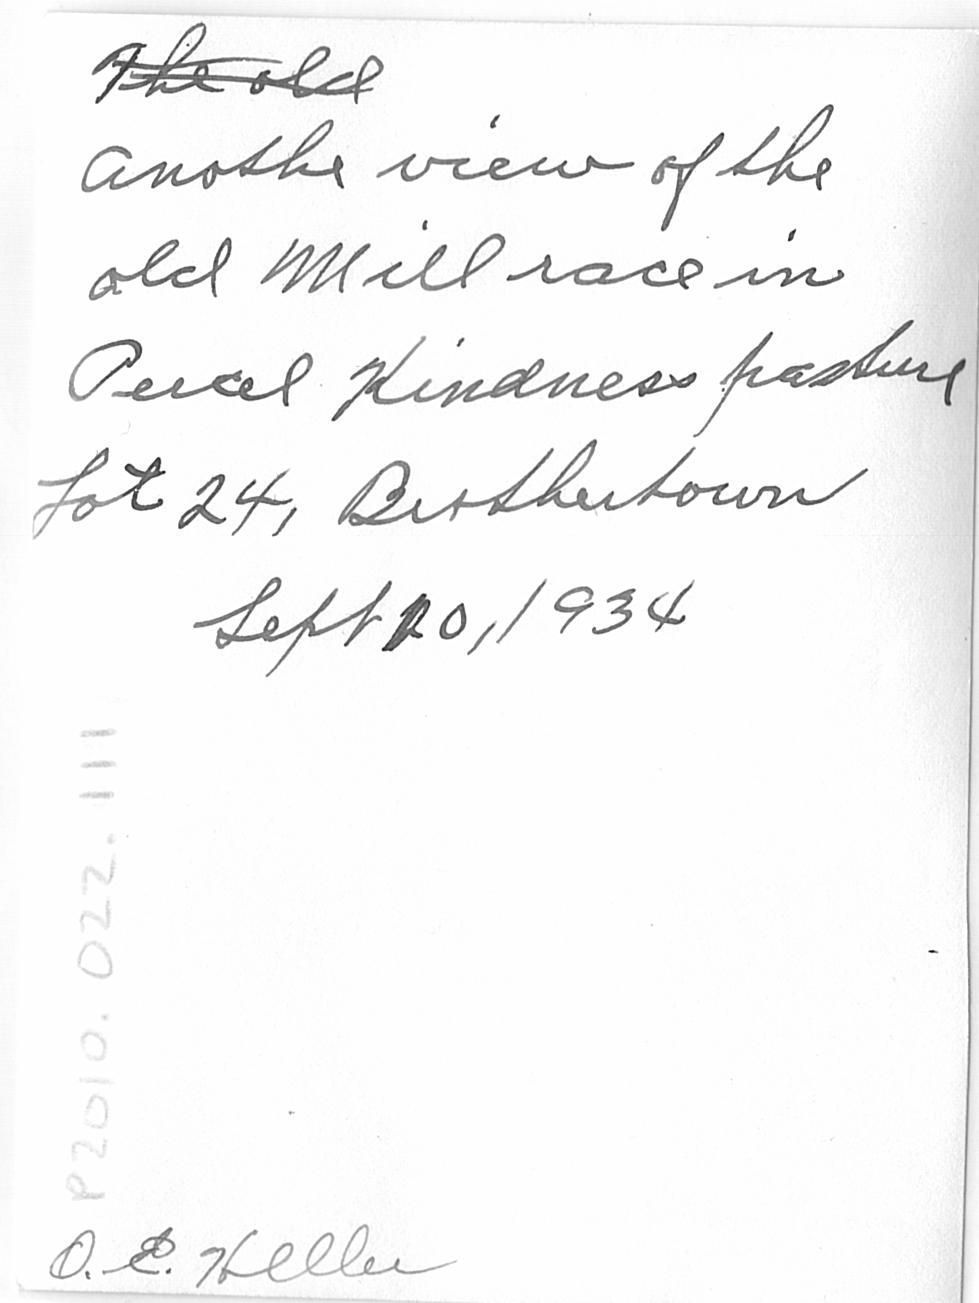 The old
Anothe view of the
old Mill race in
Percel Kindness pasture
Lot 24, Brothertown
Sept 20, 1934
P2010.022.111
O. E. Heller